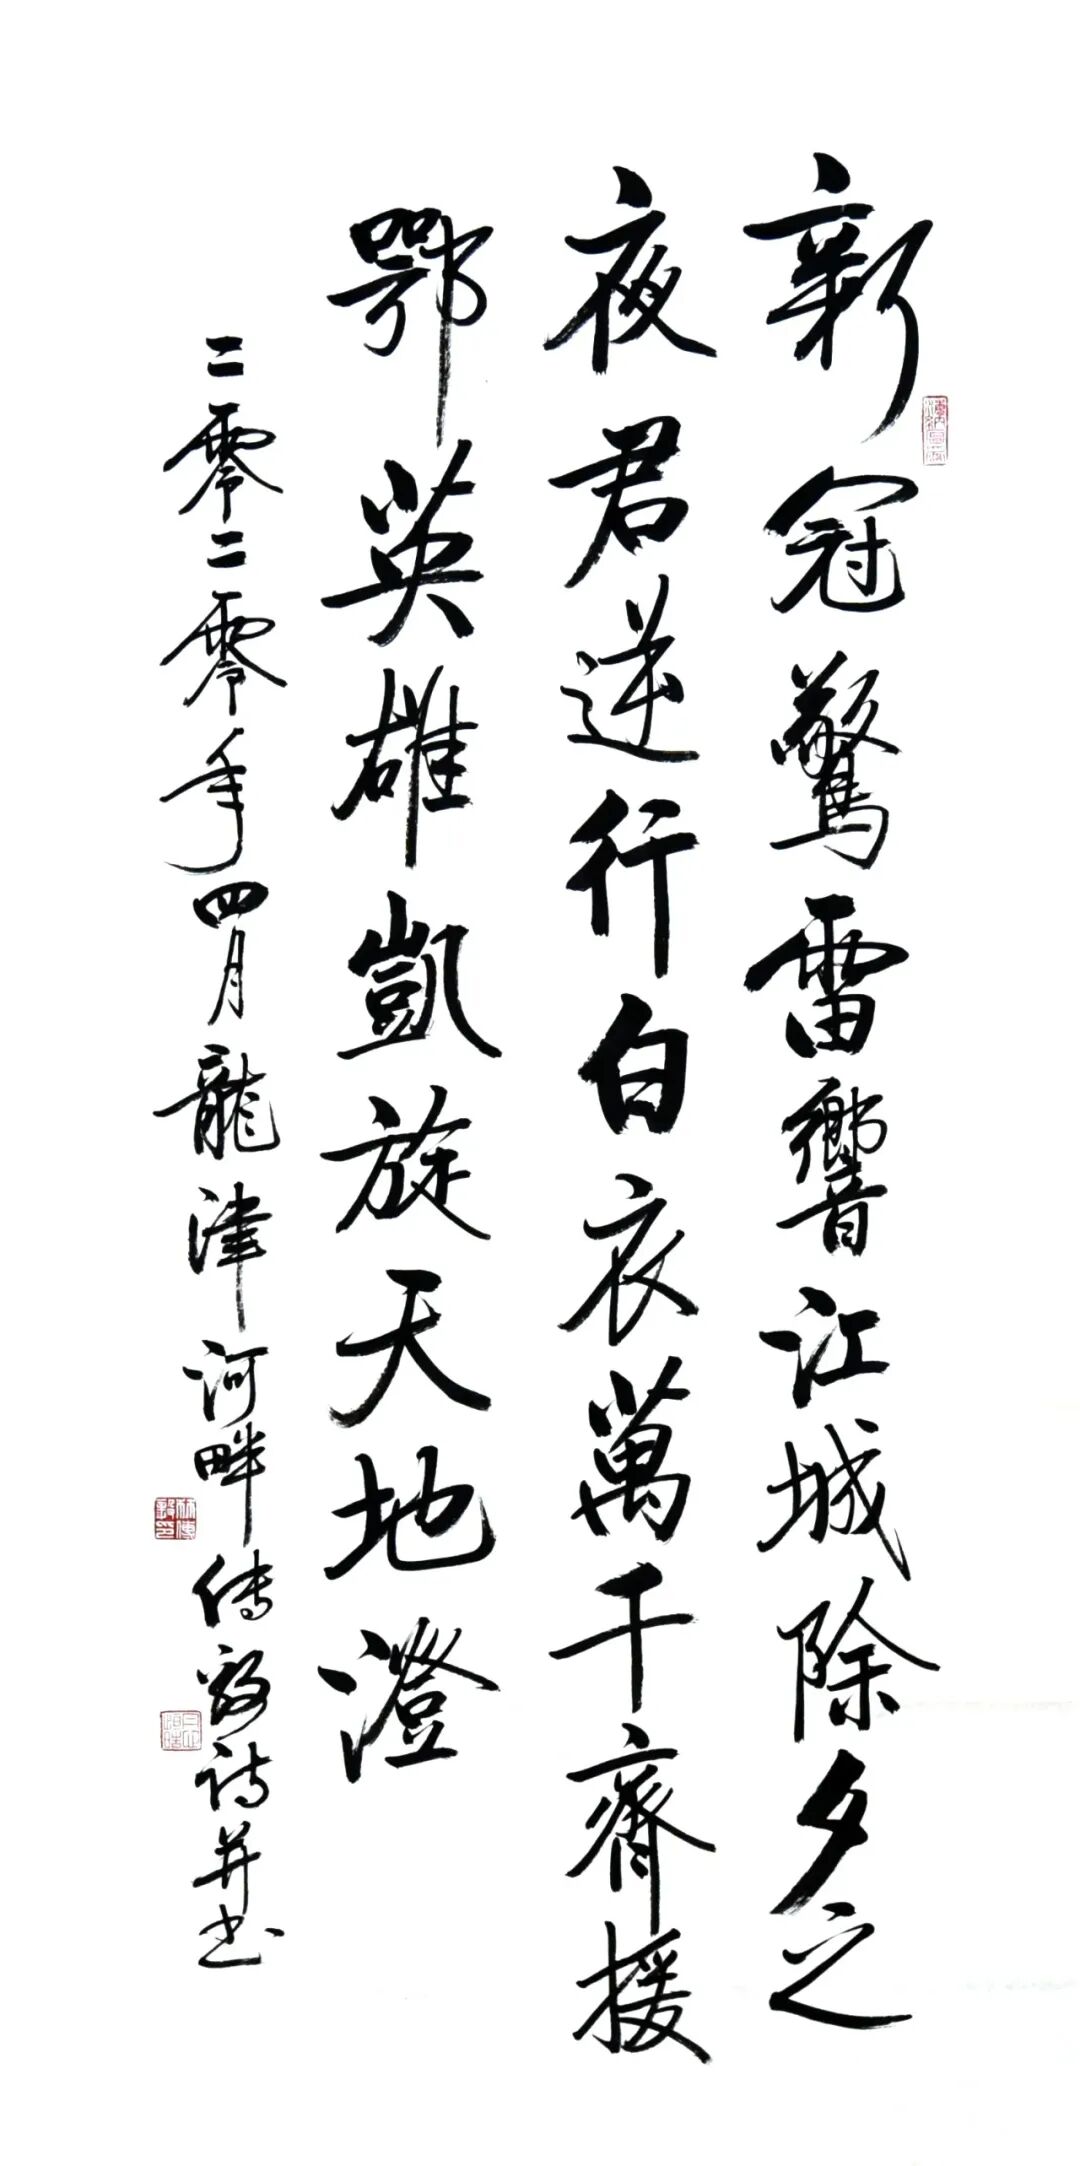 新冠驚雷響江城除夕之
夜君逆行白衣萬千齊援
鄂英雄凱旋天地澄
二零二零年四月龍津河畔传毅诗并书
林傳毅印